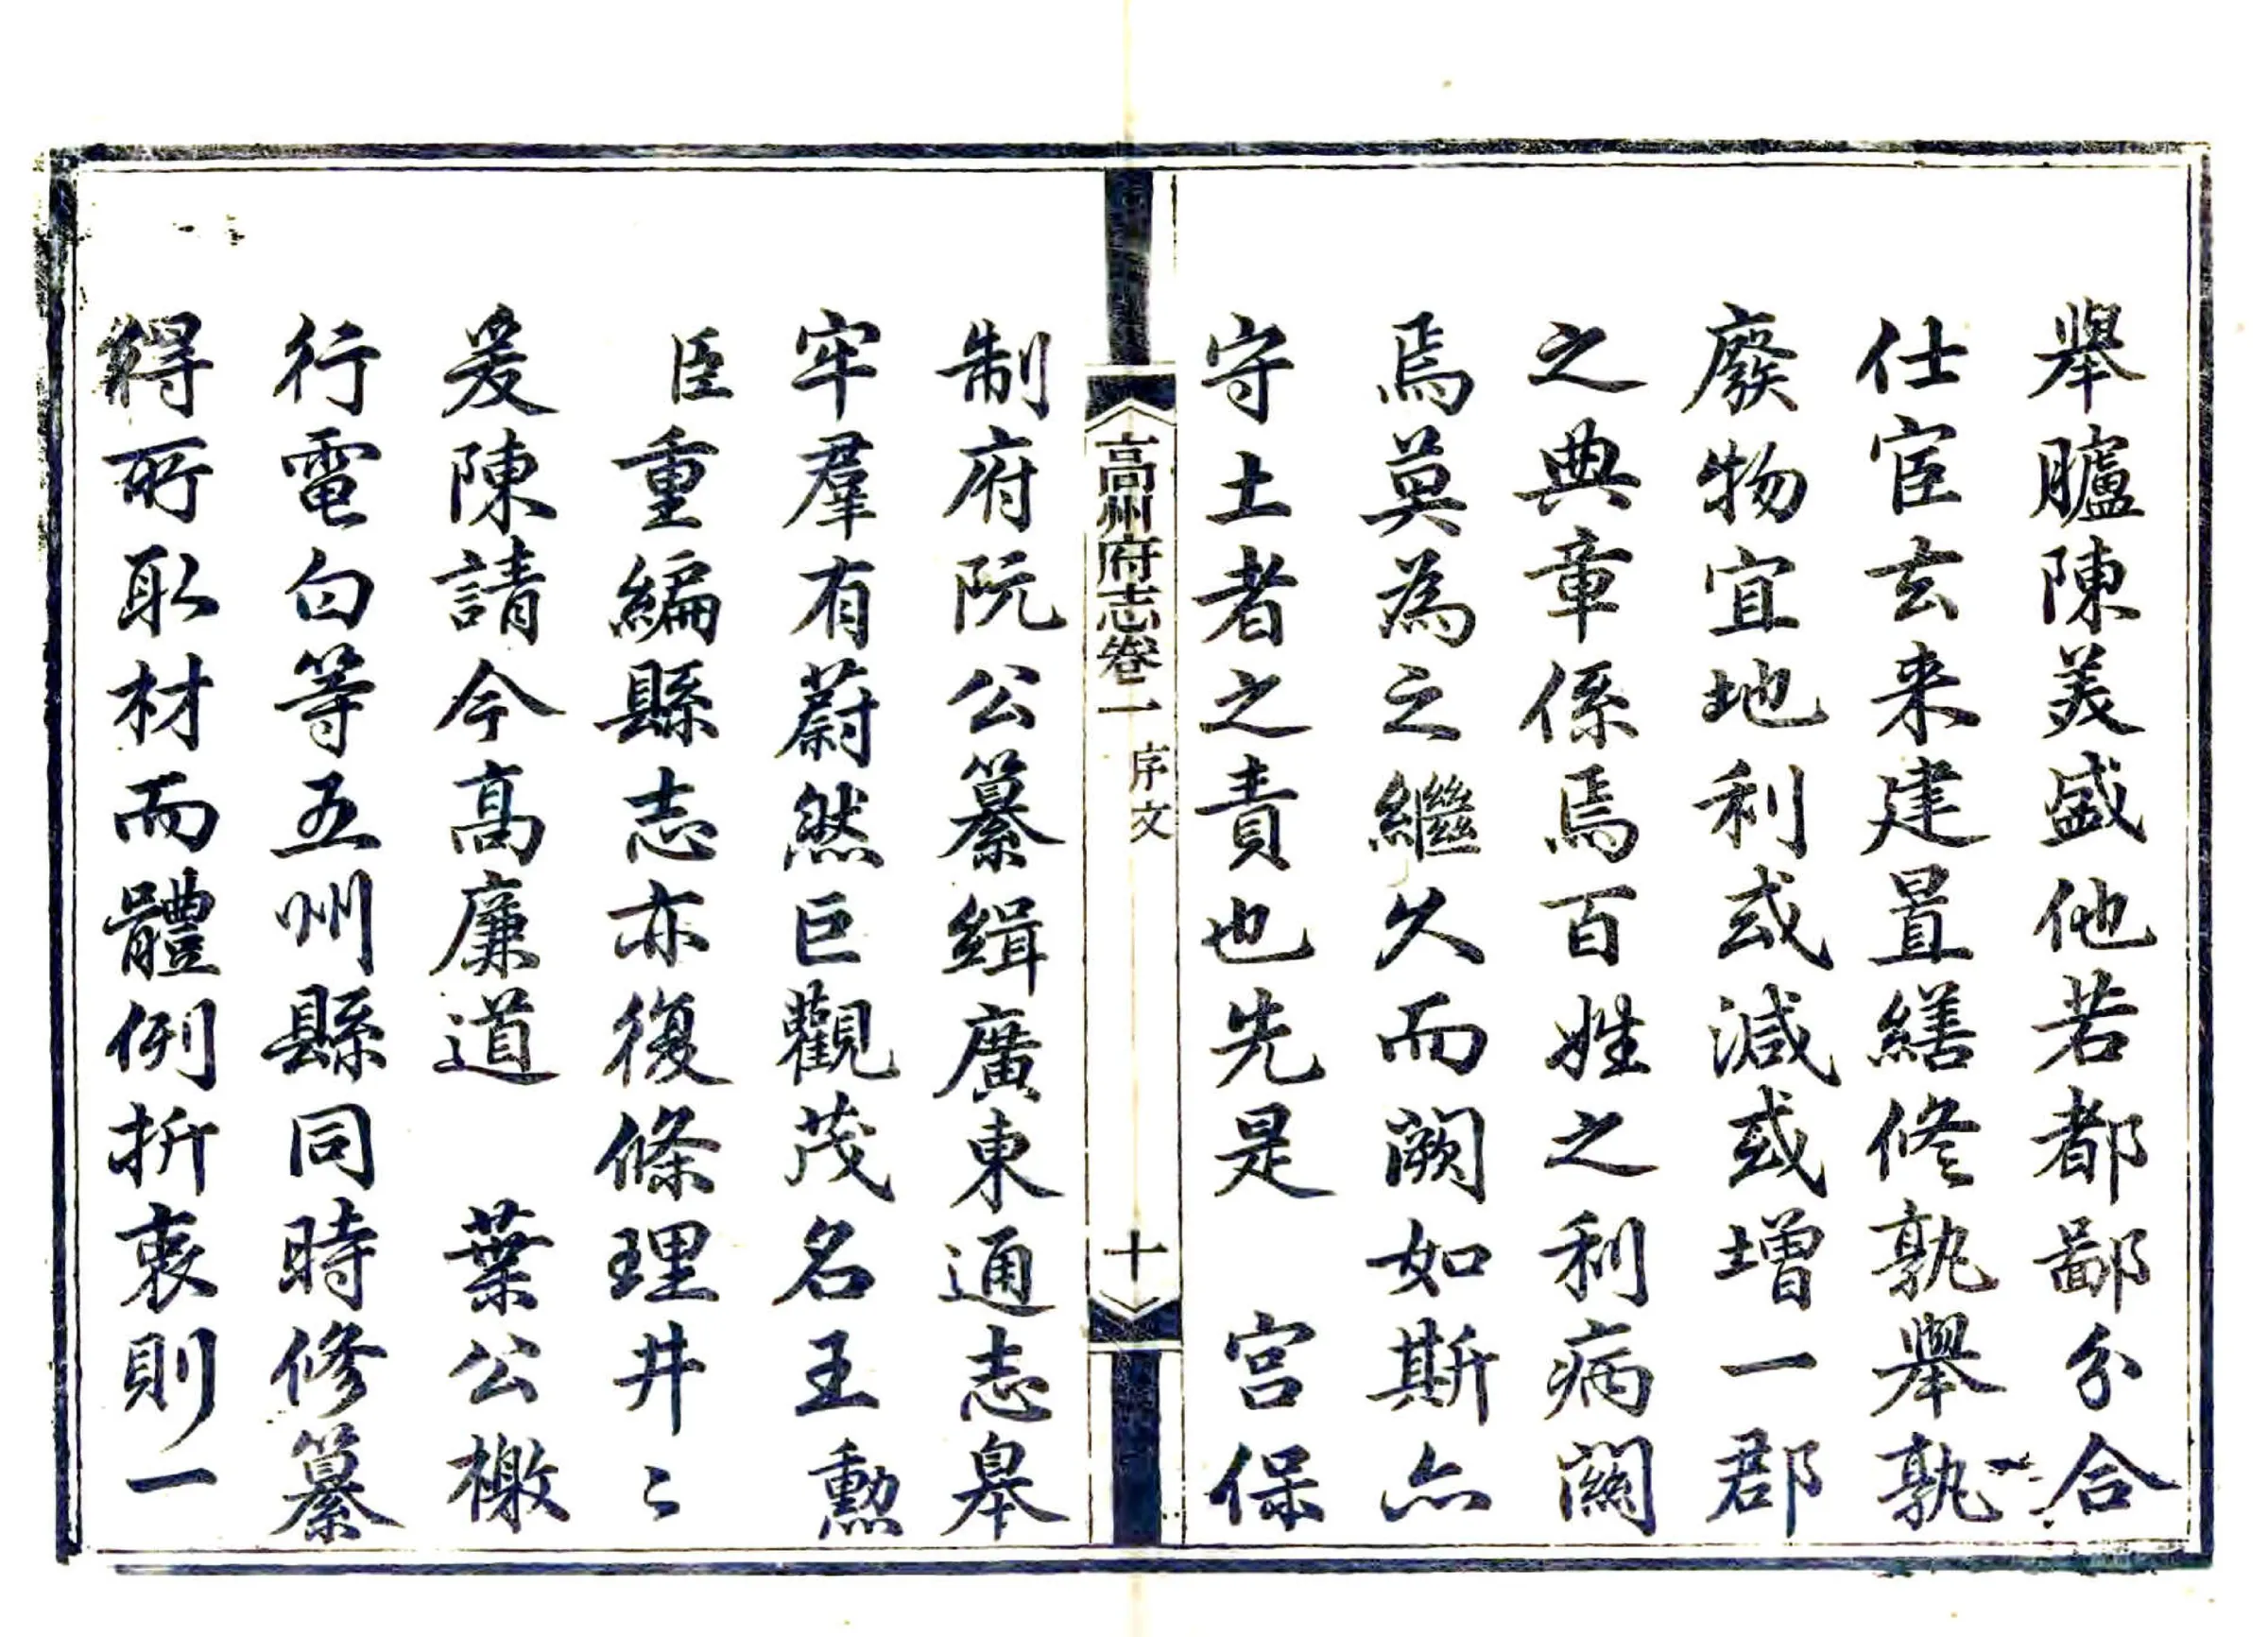 舉臚陳美盛他若都鄙分合
仕宦玄来建置繕修孰舉孰
廢物宜地利或減或增一郡
之典章係焉百姓之利病關
焉莫為之繼久而闕如斯亦
守土者之責也先是　宮保
高州府志卷一 序文 十
制府阮公纂緝廣東通志皋
牢羣有蔚然巨觀茂名王勳
臣重編縣志亦復條理井〻
爰陳請今高廉道　葉公檄
行電白等五州縣同時修纂
得所取材而體例折衷則一